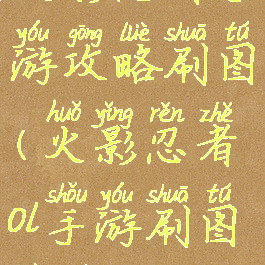 yóu gōng lüè shuā tú
游攻略刷图
huǒ yǐng rěn zhě
(火影忍者
shǒu yóu shuā tú
ol手游刷图